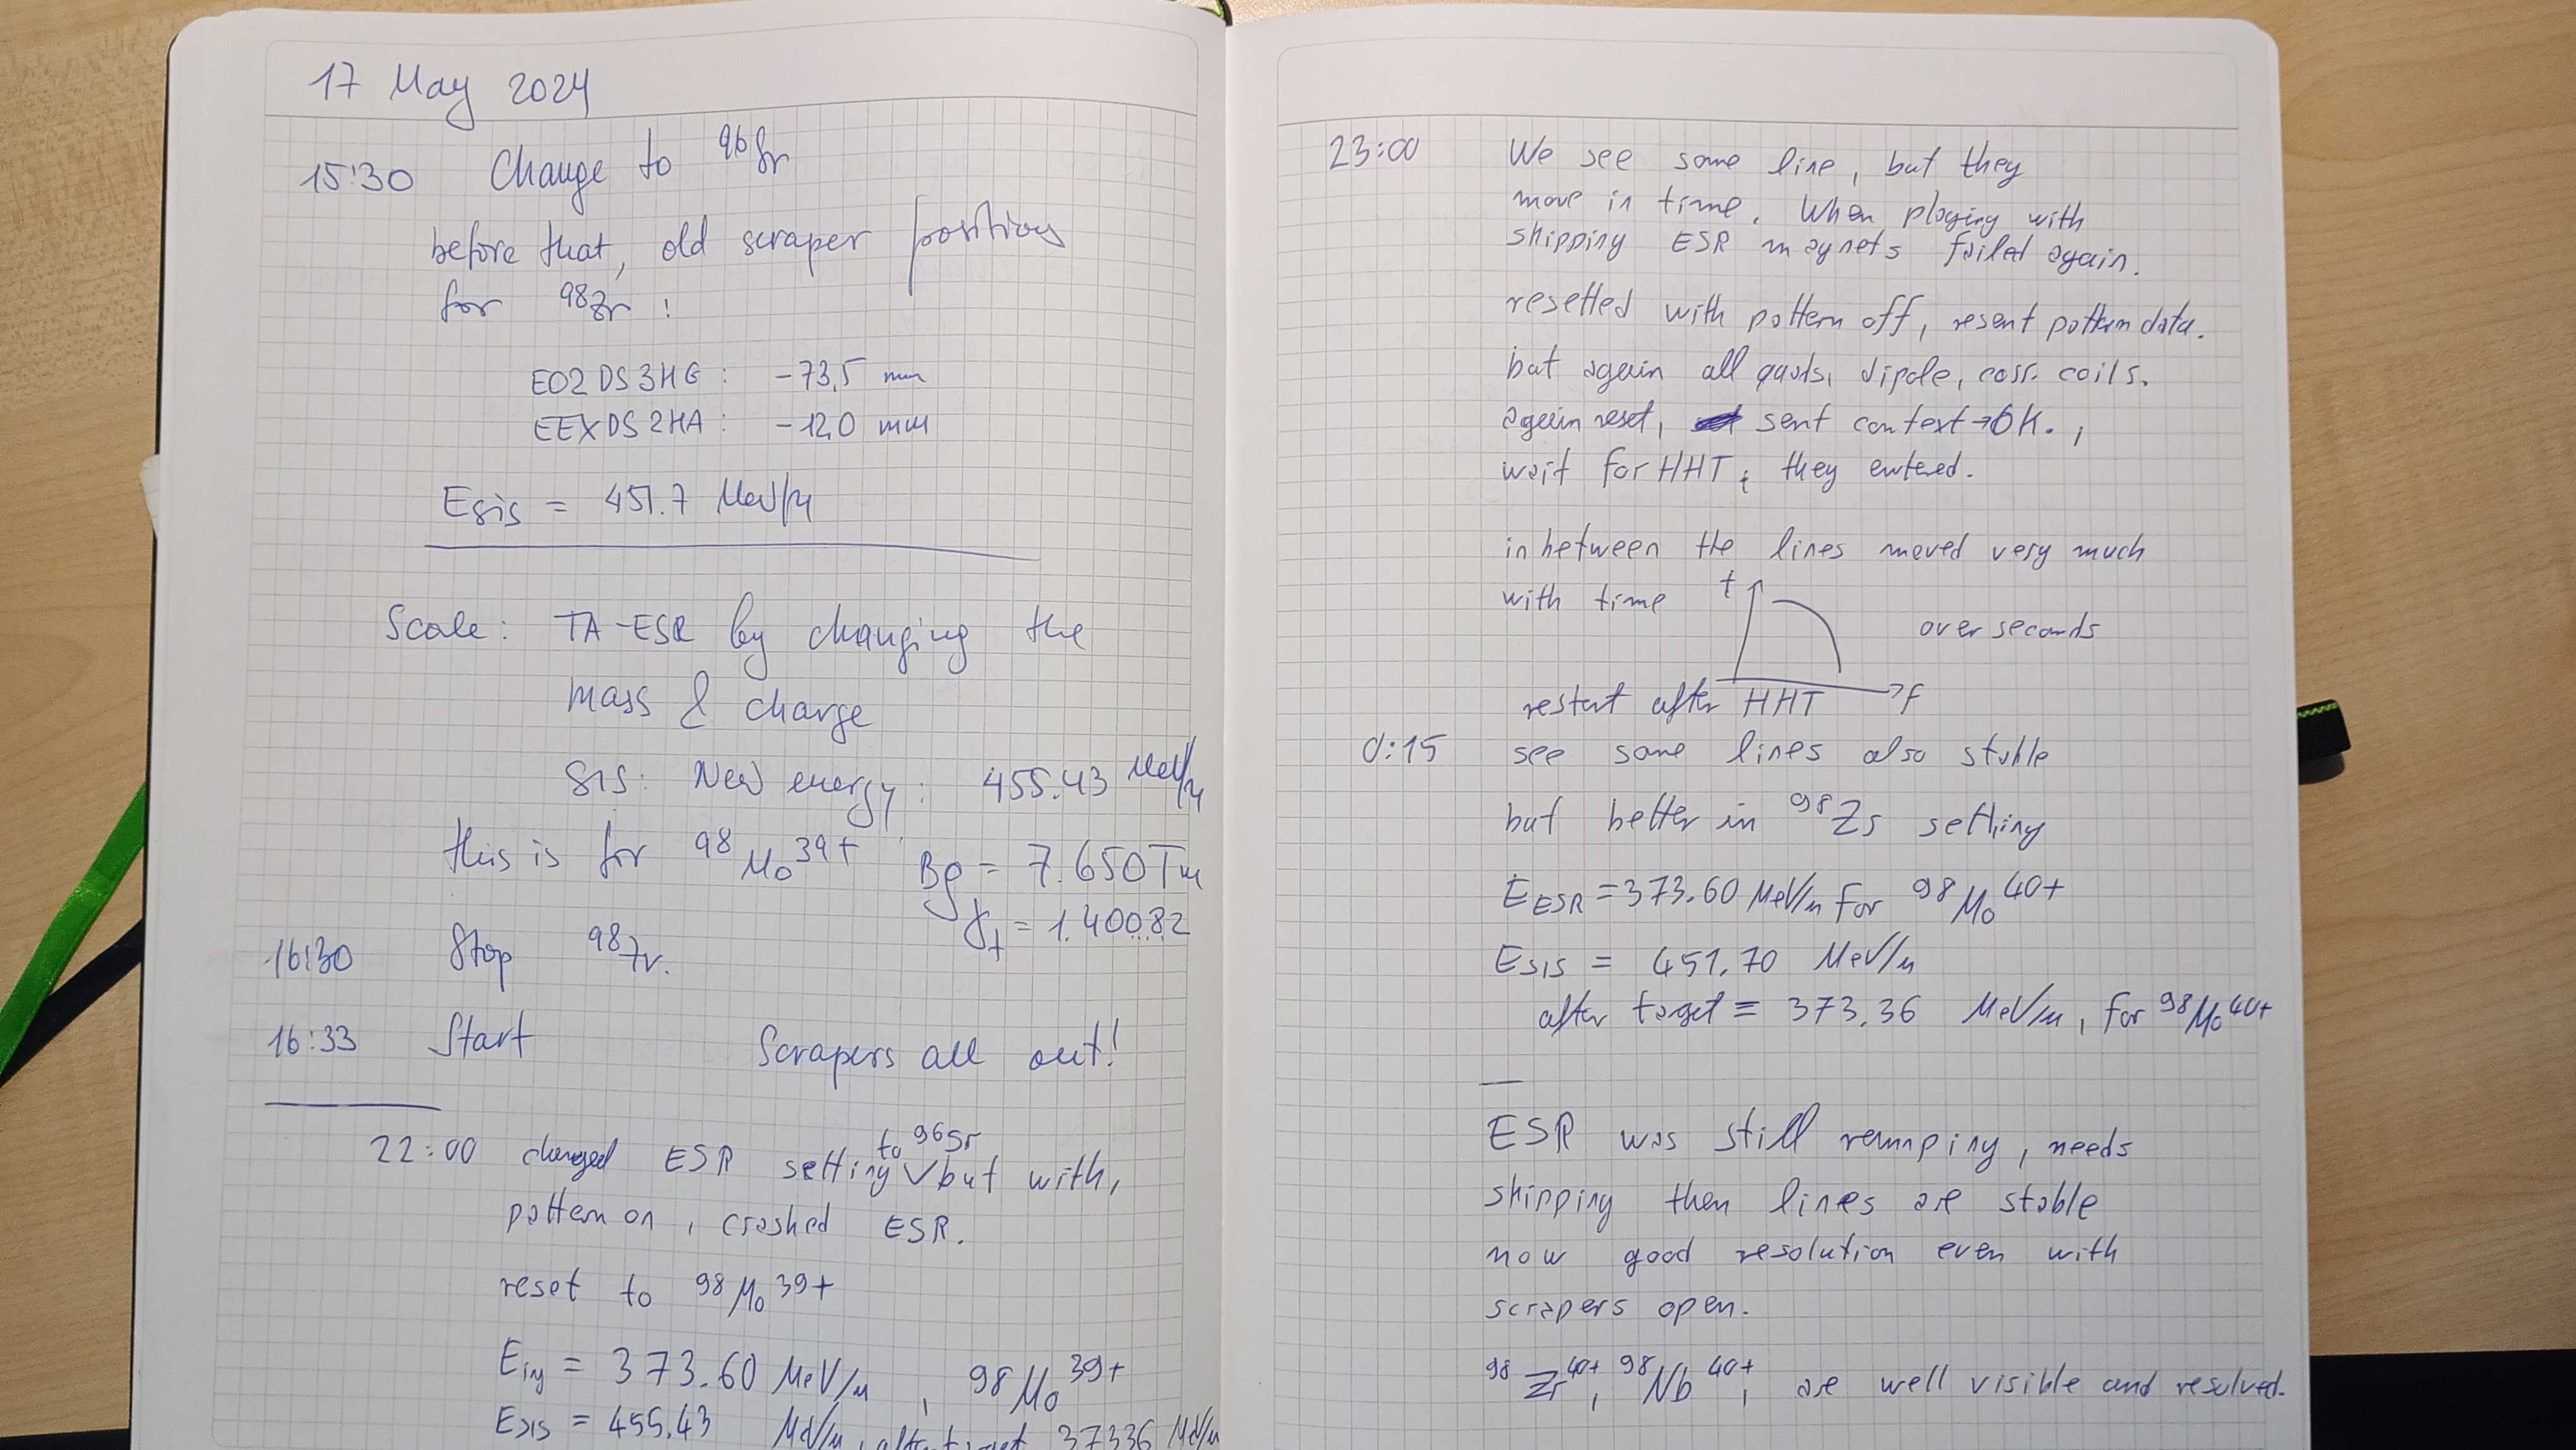 17 May 2024
15:30 Change to ⁹⁶Sr
before that, old scraper positions
for ⁹⁸Zr :
E02DS3HG : -73,5 mm
EEXDS2HA : -12,0 mm
Esis = 451.7 MeV/u
Scale: TA-ESR by changing the
mass & charge
SIS: New energy: 455.43 MeV/u
this is for ⁹⁸Mo³⁹⁺ Bρ = 7.650 Tm
γt = 1.40082
16:30 Stop ⁹⁸Zr.
16:33 Start Scrapers all out!
22:00 changed ESR setting to ⁹⁶Sr but with,
pattern on, crashed ESR.
reset to ⁹⁸Mo³⁹⁺
Einj = 373.60 MeV/u, ⁹⁸Mo³⁹⁺
ESIS = 455.43 MeV/u, after target 373.36 MeV/u
23:00 We see some line, but they
move in time. When playing with
shipping ESR magnets failed again.
resetted with pattern off, resent pattern data.
but again all quads, dipole, corr. coils.
again reset, sent context → OK. ,
wait for HHT; they entered.
in between the lines moved very much
with time t
over seconds
f
restart after HHT
0:15 see some lines also stable
but better in ⁹⁸Zr setting
EESR = 373.60 MeV/u for ⁹⁸Mo⁴⁰⁺
ESIS = 451.70 MeV/u
after target = 373.36 MeV/u, for ⁹⁸Mo⁴⁰⁺
ESR was still remaping, needs
shipping then lines are stable
now good resolution even with
scrapers open.
⁹⁸Zr⁴⁰⁺, ⁹⁸Nb⁴⁰⁺, are well visible and resolved.